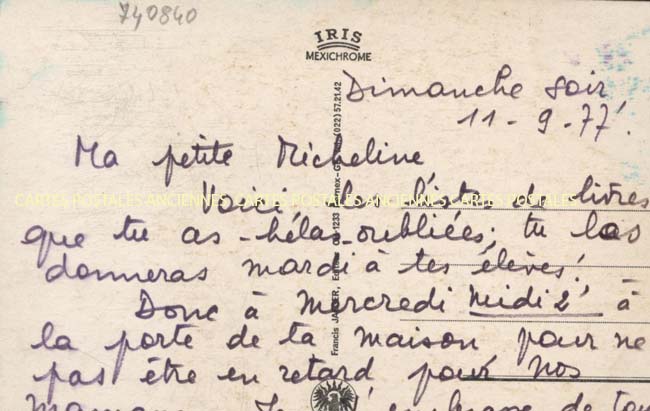 740840
IRIS
MEXICHROME
Dimanche soir
11-9-77.
Ma petite Micheline
Voici les listes de livres
que tu as - hélas - oubliées; tu les
donneras mardi à tes élèves!
Donc à Mercredi Midi 2' à
la porte de ta maison pour ne
pas être en retard pour nos
CARTES POSTALES ANCIENNES CARTES POSTALES ANCIENNES CARTES POSTALES
Francis JAEGER, Editeur, CH 1233 (022) 57.21.42